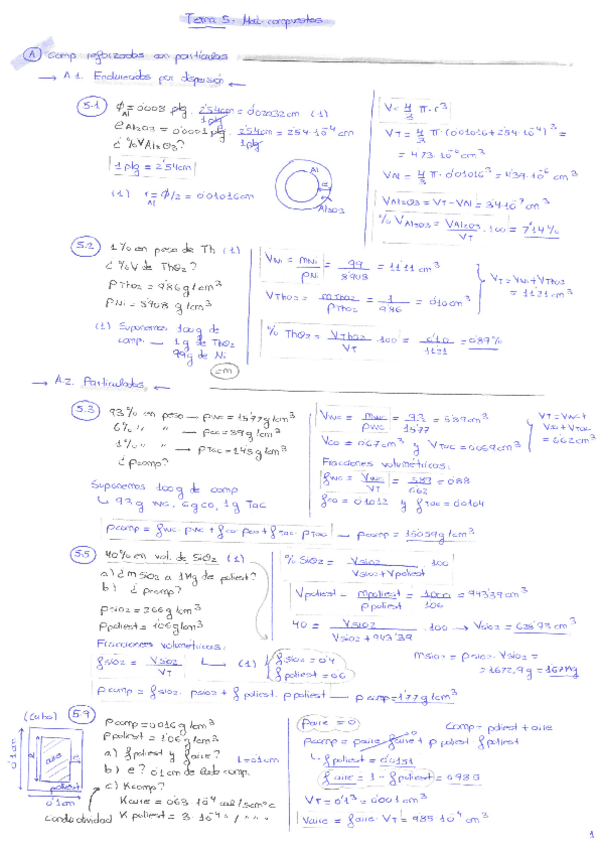 Tema 5. Mat. compuestos
A Comp. reforzados con partículas
→ A1. Endurecidos por dispersión ←
5.1 ϕAl = 0'0008 plg · 2'54cm / 1plg = 0'002032 cm (1)
eAl2O3 = 0'0001 plg · 2'54cm / 1plg = 2'54·10⁻⁴ cm
¿%VAl2O3?
1 plg = 2'54cm
(1) rAl = ϕ/2 = 0'001016 cm
Al
Al2O3
V = 4/3 π · r³
VAl2O3 = VT - VAl
% VAl2O3 = VAl2O3 / VT · 100 = 7'14%
5.2 1% en peso de Th (1)
¿%V de ThO2?
ρThO2 = 9'86 g/cm³
ρNi = 8'908 g/cm³
(1) Suponemos 100g de
comp. → 1g de ThO2
99g de Ni
cm
VNi = mNi / ρNi = 99 / 8'908 = 11'11 cm³
VThO2 = mThO2 / ρThO2 = 1 / 9'86 = 0'10 cm³
VT = VNi + VThO2
= 11'21 cm³
% ThO2 = VThO2 / VT · 100 = 0'10 / 11'21 = 0'89%
→ A2. Particulados ←
5.3 93% en peso → ρWC = 15'77 g/cm³
6% " " → ρCo = 8'9 g/cm³
1% " " → ρTaC = 14'5 g/cm³
¿ρcomp?
Suponemos 100g de comp
↳ 93g WC, 6g Co, 1g TaC
VWC = mWC / ρWC = 93 / 15'77 = 5'89 cm³
VCo = 0'67 cm³ y VTaC = 0'069 cm³
VT = VWC +
VCo + VTaC
= 6'62 cm³
Fracciones volumétricas:
fWC = VWC / VT = 5'89 / 6'62 = 0'88
fCo = 0'1012 y fTaC = 0'0104
ρcomp = fWC · ρWC + fCo · ρCo + fTaC · ρTaC → ρcomp = 15'059 g/cm³
5.5 40% en vol. de SiO2 (1)
a) ¿mSiO2 a 1Mg de poliest?
b) ¿ρcomp?
ρSiO2 = 2'66 g/cm³
ρpoliest = 1'06 g/cm³
Fracciones volumétricas:
fSiO2 = VSiO2 / VT ↳ (1) fSiO2 = 0'4
fpoliest = 0'6
% SiO2 = VSiO2 / VSiO2 + Vpoliest · 100
Vpoliest = mpoliest / ρpoliest = 1000 / 1'06 = 943'39 cm³
40 = VSiO2 / VSiO2 + 943'39 · 100 → VSiO2 = 628'93 cm³
mSiO2 = ρSiO2 · VSiO2 =
= 1672,9 g = 1'67 Mg
ρcomp = fSiO2 · ρSiO2 + fpoliest · ρpoliest → ρcomp = 1'7 g/cm³
(Cubo) 5.9
0'1cm
aire
poliest
0'1cm
ρcomp = 0'016 g/cm³
ρpoliest = 1'06 g/cm³
a) fpoliest y faire?
b) e? 0'1 cm de lado comp.
c) Kcomp?
Kaire = 0'63·10⁻⁴ cal/scm°C
Kpoliest = 3·10⁻⁴ " "
conductividad
ρaire = 0
Comp = poliest + aire
ρcomp = ρaire · faire + ρpoliest fpoliest
↳ fpoliest = 0'0151
faire = 1 - fpoliest = 0'989
VT = 0'1³ = 0'001 cm³
Vaire = faire · VT = 9'85·10⁻⁴ cm³
1